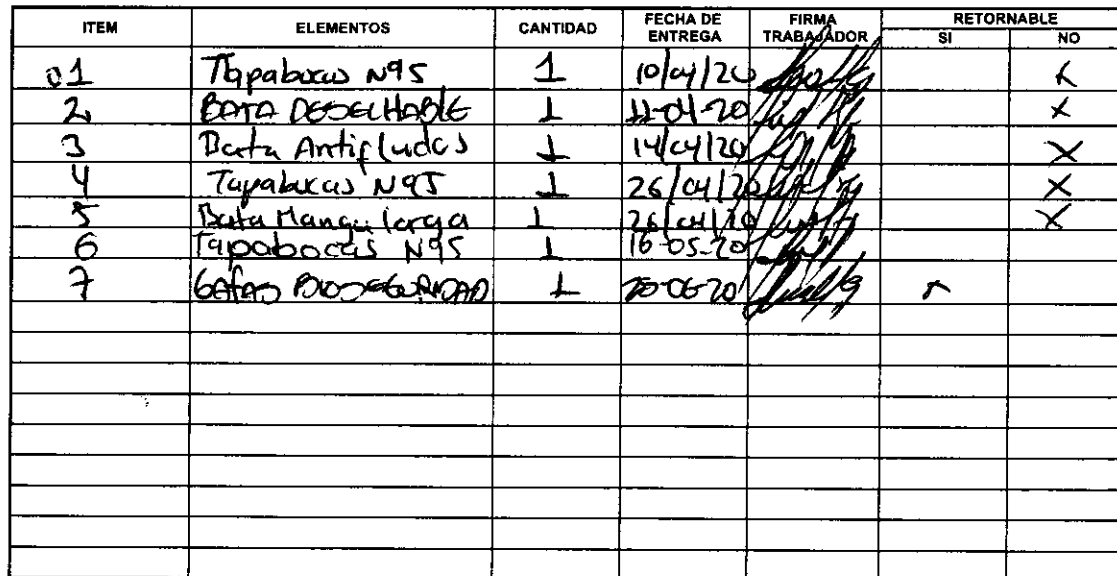 ITEM ELEMENTOS CANTIDAD FECHA DE ENTREGA FIRMA TRABAJADOR RETORNABLE SI NO
01 Tapabocas N95 1 10/04/20 X
2 BATA DESECHABLE 1 11-04-20 X
3 Bata Antifluidos 1 14/04/20 X
4 Tapabocas N95 1 26/04/20 X
5 Bata Manga larga 1 26/04/20 X
6 Tapabocas N95 1 16-05-20
7 GAFAS BIOSEGURIDAD 1 20-06-20 X